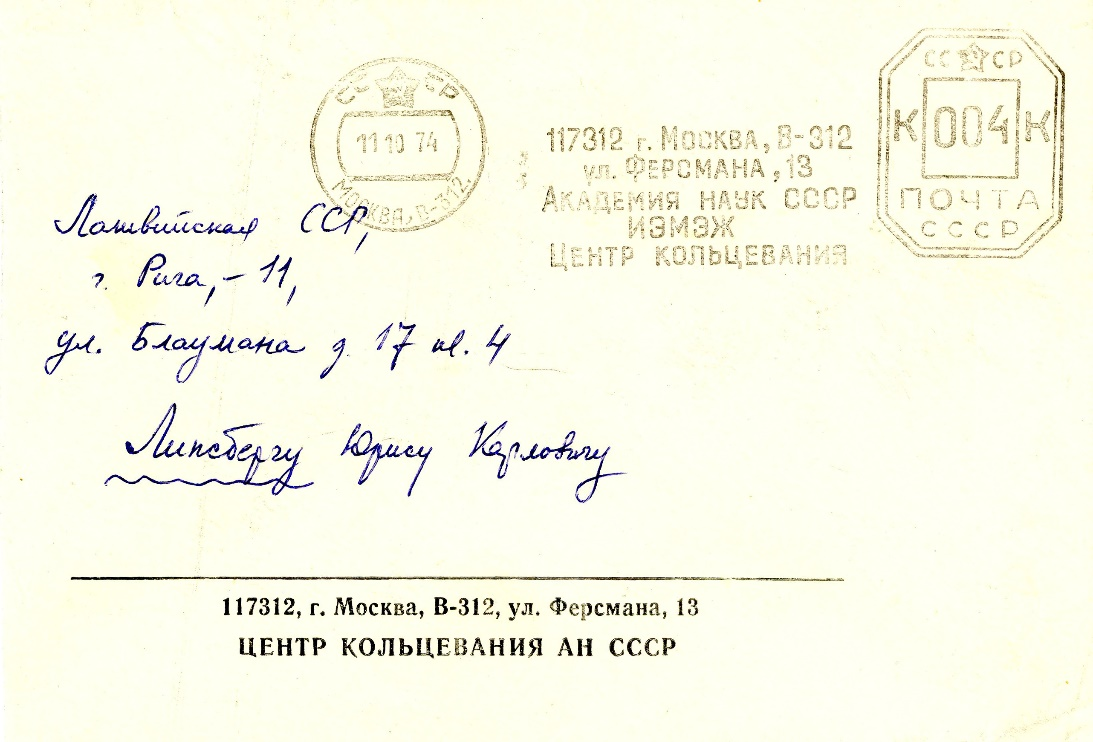 СССР
11 10 74
МОСКВА, В-312
117312 г. МОСКВА, В-312
ул. ФЕРСМАНА, 13
АКАДЕМИЯ НАУК СССР
ИЭМЭЖ
ЦЕНТР КОЛЬЦЕВАНИЯ
СССР
К 004 К
ПОЧТА
СССР
Латвийская ССР,
г. Рига, – 11,
ул. Блаумана д 17 кв. 4
Липсбергу Юрису Карловичу
117312, г. Москва, В-312, ул. Ферсмана, 13
ЦЕНТР КОЛЬЦЕВАНИЯ АН СССР